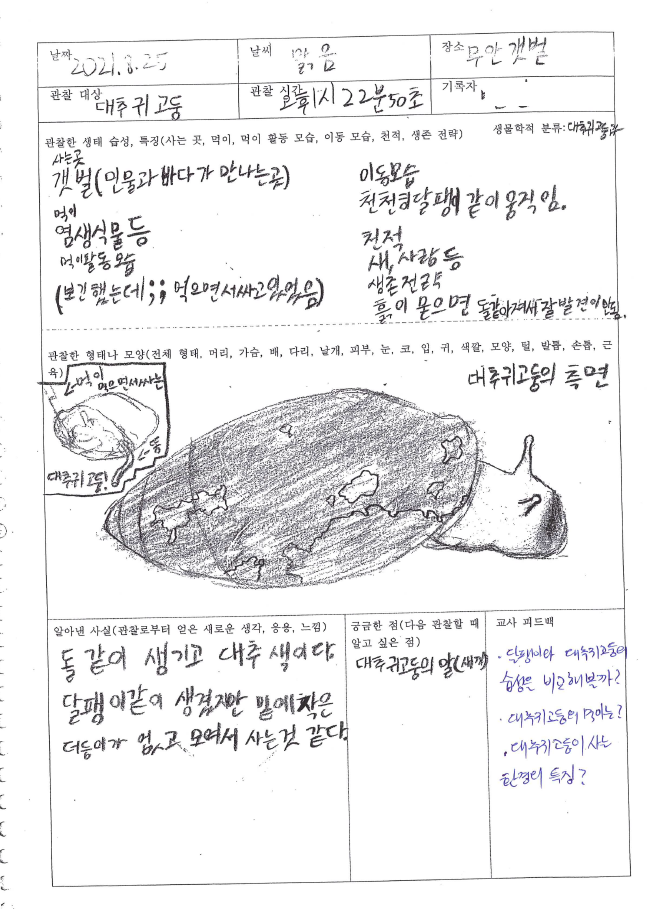 날짜 2021.8.25
날씨 맑음
장소 무안갯벌
관찰 대상 대추귀고둥
관찰 시간 오후1시22분50초
기록자
관찰한 생태 습성, 특징(사는 곳, 먹이, 먹이 활동 모습, 이동 모습, 천적, 생존 전략)
생물학적 분류: 대추귀고둥과
사는곳
갯벌(민물과 바다가 만나는곳)
먹이
염생식물 등
먹이활동모습
(보긴 했는데;; 먹으면서싸고있었음)
이동모습
천천히달팽이 같이 움직임.
천적
새, 사람 등
생존전략
흙이 묻으면 돌같아져서 잘발견이안됨.
관찰한 형태나 모양(전체 형태, 머리, 가슴, 배, 다리, 날개, 피부, 눈, 코, 입, 귀, 색깔, 모양, 털, 발톱, 손톱, 근
육)
←먹이
먹으면서싸는
←똥
대추귀고둥!
대추귀고둥의 측면
알아낸 사실(관찰로부터 얻은 새로운 생각, 응용, 느낌)
돌 같이 생기고 대추 색이다.
달팽이같이 생겼지만 밑에 작은
더듬이가 없고 모여서 사는것 같다.
궁금한 점(다음 관찰할 때
알고 싶은 점)
대추귀고둥의 알(새끼)
교사 피드백
· 달팽이와 대추귀고둥의
습성을 비교해볼까?
· 대추귀고둥의 먹이는?
· 대추귀고둥이 사는
환경의 특징?